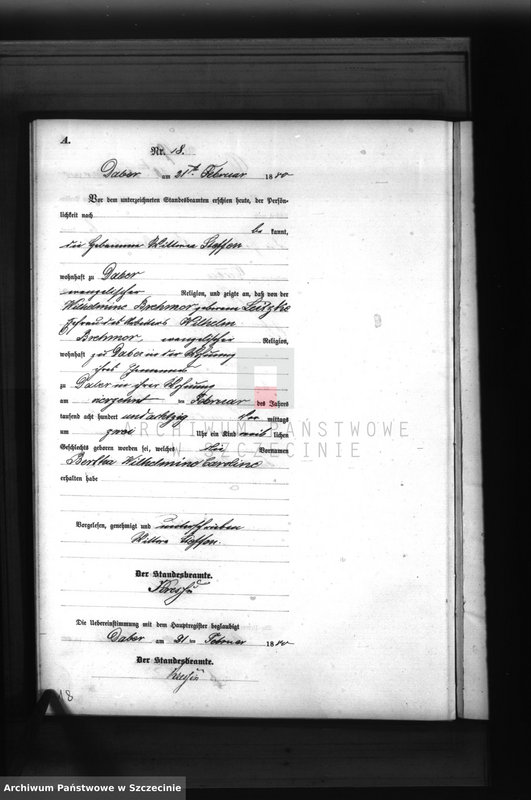 A.
Nr. 18.
Daber am 21ten Februar 1880
Vor dem unterzeichneten Standesbeamten erschien heute, der Persön-
lichkeit nach
be kannt,
die Hebamme Wittwe Steffen
wohnhaft zu Daber
evangelischer Religion, und zeigte an, daß von der
Wilhelmine geborenen
Ehefrau des Arbeiters Wilhelm
evangelischer Religion,
wohnhaft zu Daber in der Wohnung
ihres Ehemannes
zu Daber in ihrer Wohnung
am Februar des Jahres
tausend acht hundert und achtzig Vor mittags
um zwei Uhr ein Kind weib lichen
Geschlechts geboren worden sei, welches die Vornamen
Bertha Wilhelmine Caroline
erhalten habe
Vorgelesen, genehmigt und unterschrieben
Wittwe Steffen.
Der Standesbeamte.
Die Uebereinstimmung mit dem Hauptregister beglaubigt
Daber am 21 ten Februar 1880
Der Standesbeamte.
18
ARCHIWUM PAŃSTWOWE
W SZCZECINIE
Archiwum Państwowe w Szczecinie